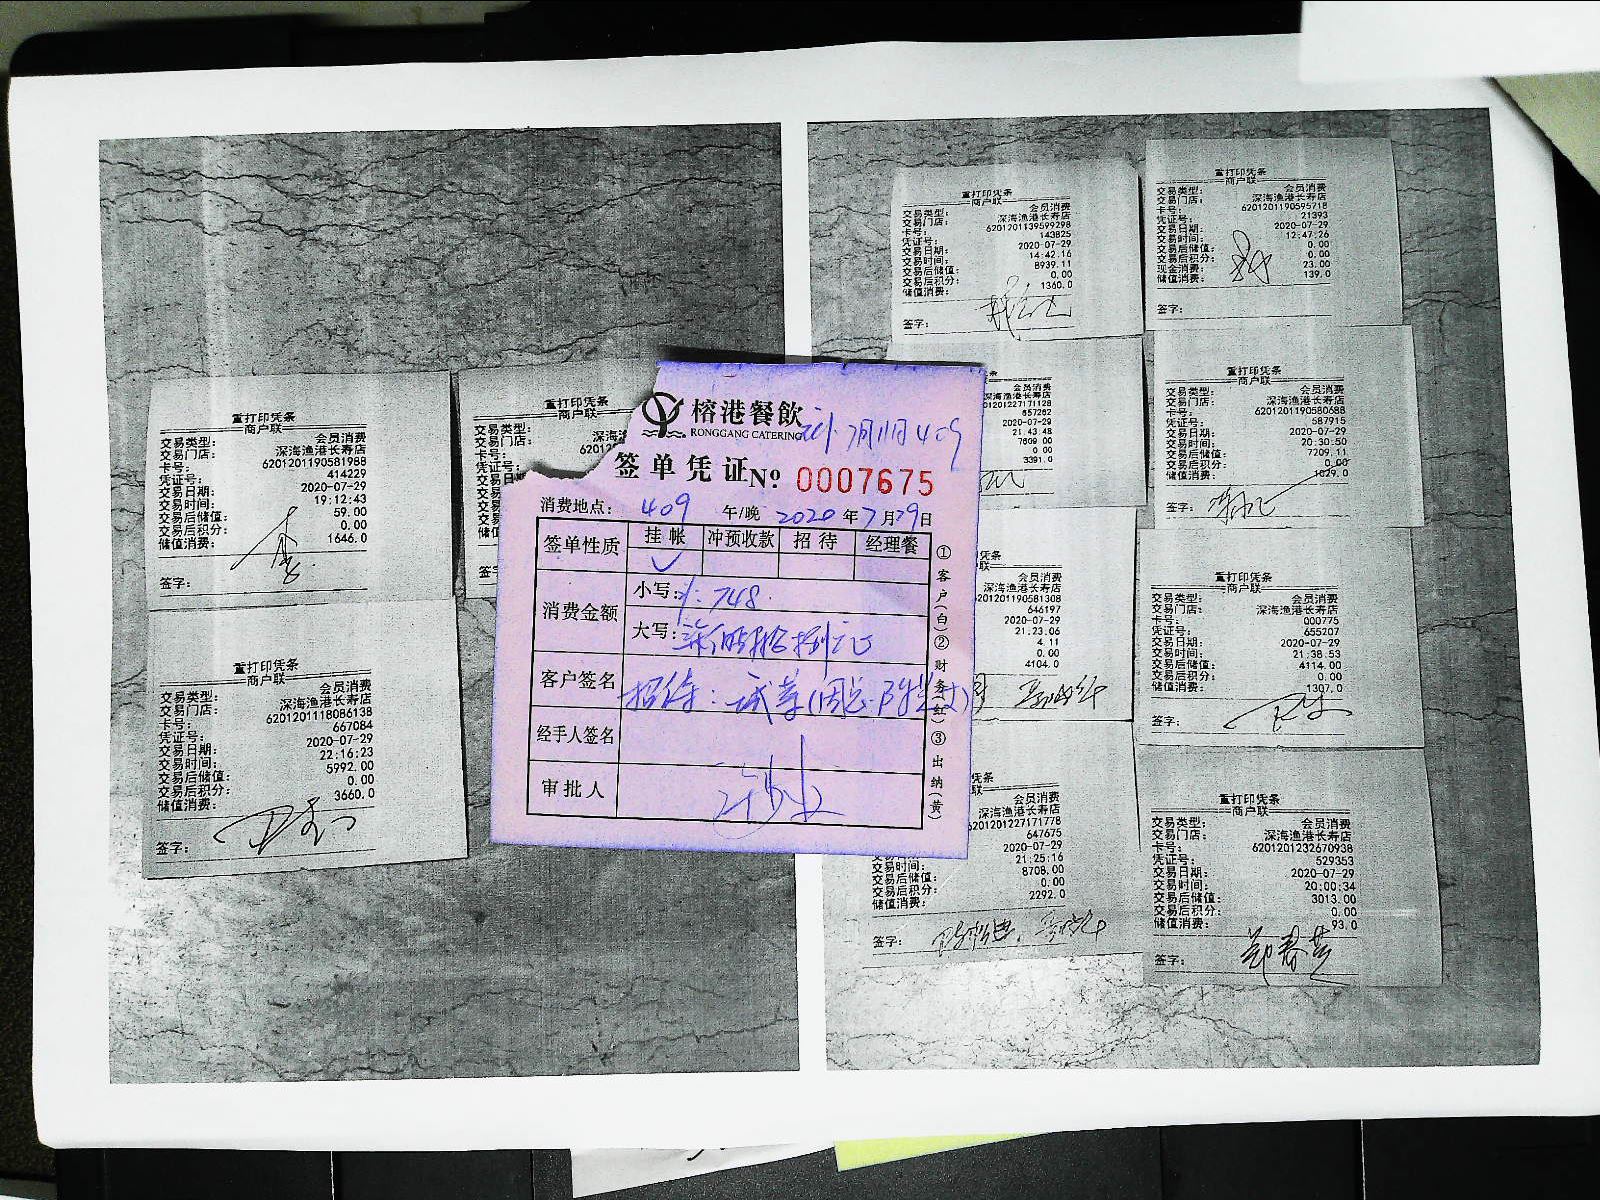 重打印凭条
商户联
交易类型： 会员消费
交易门店： 深海渔港长寿店
卡号： 6201201190581988
凭证号： 414229
交易日期： 2020-07-29
交易时间： 19:12:43
交易后储值： 59.00
交易后积分： 0.00
储值消费： 1646.0
签字：
重打印凭条
商户联
交易类型： 会员消费
交易门店： 深海渔港长寿店
卡号： 6201201118086138
凭证号： 667084
交易日期： 2020-07-29
交易时间： 22:16:23
交易后储值： 5992.00
交易后积分： 0.00
储值消费： 3660.0
签字：
重打印凭条
商户联
交易类型：
交易门店： 深海
卡号： 620120
凭证号：
榕港餐飲
RONGGANG CATERING
409
签单凭证 № 0007675
消费地点： 409 午/晚 2020 年 7 月 29 日
签单性质 挂帐 冲预收款 招待 经理餐
消费金额 小写： 748
大写：
客户签名 招待：
经手人签名
审批人
①客户(白)②财务(红)③出纳(黄)
重打印凭条
商户联
交易类型： 会员消费
交易门店： 深海渔港长寿店
卡号： 6201201139599298
凭证号： 143825
交易日期： 2020-07-29
交易时间： 14:42:16
交易后储值： 8939.11
交易后积分： 0.00
储值消费： 1360.0
签字：
重打印凭条
商户联
交易类型： 会员消费
交易门店： 深海渔港长寿店
卡号： 6201201190595718
凭证号： 21393
交易日期： 2020-07-29
交易时间： 12:47:26
交易后储值： 0.00
交易后积分： 0.00
现金消费： 23.00
储值消费： 139.0
签字：
会员消费
深海渔港长寿店
201227171128
857262
2020-07-29
21:43:48
7609.00
0.00
3391.0
重打印凭条
商户联
交易类型： 会员消费
交易门店： 深海渔港长寿店
卡号： 6201201190580688
凭证号： 587915
交易日期： 2020-07-29
交易时间： 20:30:50
交易后储值： 7209.11
交易后积分： 0.00
储值消费： 1029.0
签字：
会员消费
深海渔港长寿店
201201190581308
646197
2020-07-29
21:23:06
4.11
0.00
4104.0
重打印凭条
商户联
交易类型： 会员消费
交易门店： 深海渔港长寿店
卡号： 000775
凭证号： 655207
交易日期： 2020-07-29
交易时间： 21:38:53
交易后储值： 4114.00
交易后积分： 0.00
储值消费： 1307.0
签字：
会员消费
深海渔港长寿店
6201201227171778
647675
2020-07-29
交易时间： 21:25:16
交易后储值： 8708.00
交易后积分： 0.00
储值消费： 2292.0
签字：
重打印凭条
商户联
交易类型： 会员消费
交易门店： 深海渔港长寿店
卡号： 6201201232670938
凭证号： 529353
交易日期： 2020-07-29
交易时间： 20:00:34
交易后储值： 3013.00
交易后积分： 0.00
储值消费： 93.0
签字： 郑春芝